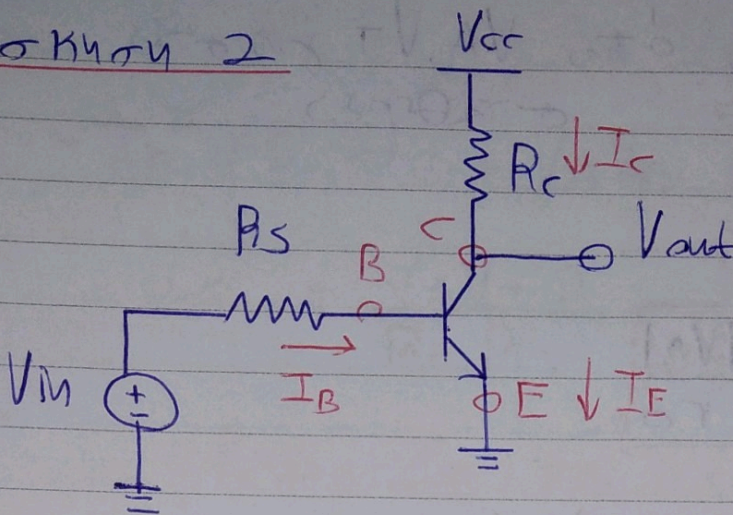 σκηση 2
Vcc
Rc ↓ Ic
Rs
C
Vout
B
Vin
+
-
→
IB
E ↓ IE